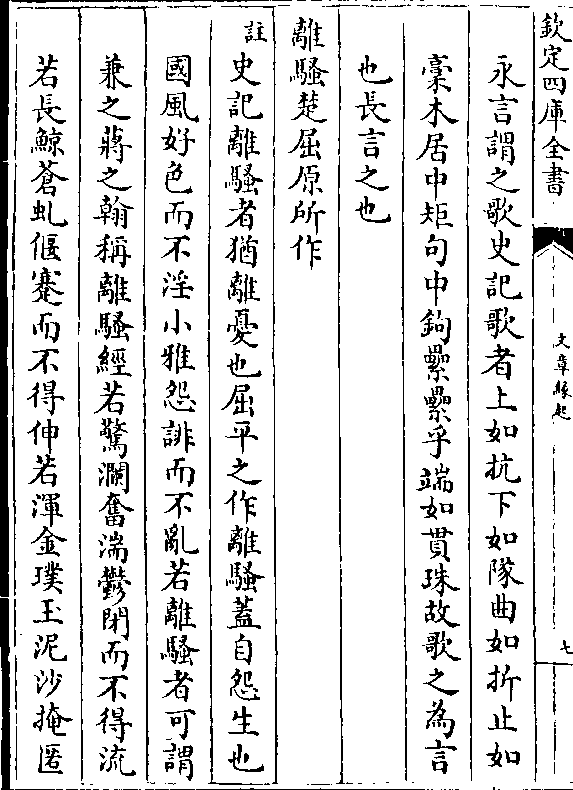 欽定四庫全書
文章緣起
七
永言謂之歌史記歌者上如抗下如隊曲如折止如
槀木居中矩句中鉤纍纍乎端如貫珠故歌之為言
也長言之也
離騷楚屈原所作
註史記離騷者猶離憂也屈平之作離騷蓋自怨生也
國風好色而不淫小雅怨誹而不亂若離騷者可謂
兼之蔣之翰稱離騷經若驚瀾奮湍鬱閉而不得流
若長鯨蒼虬偃蹇而不得伸若渾金璞玉泥沙掩匿